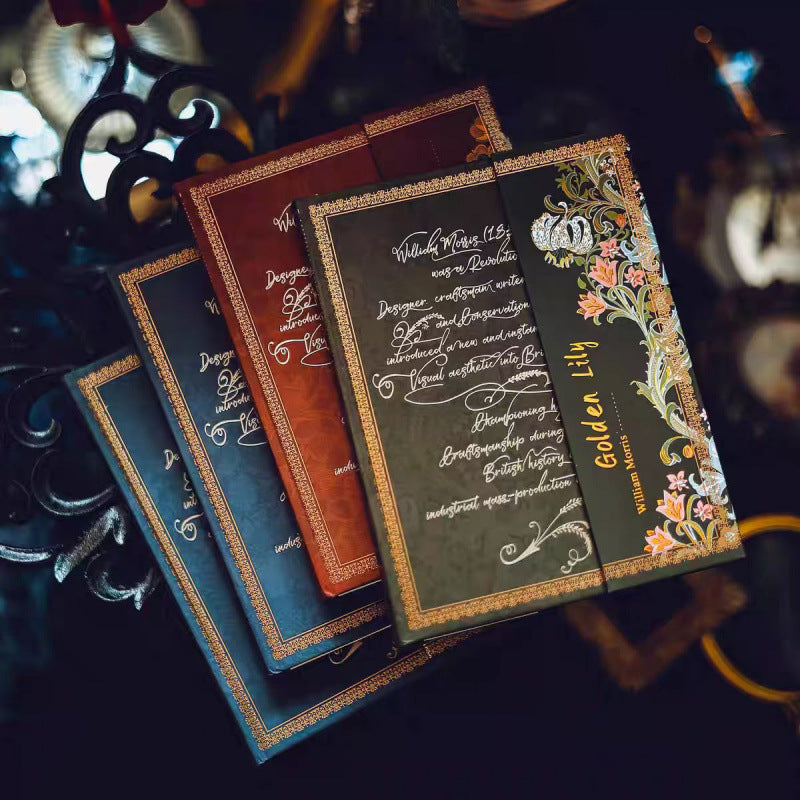 William Morris (18
was a Revolutio
Designer craftsman write
and Conservation
introduced a new and instan
Visual aesthetic into Bri
Championing h
Craftsmanship during
British history
industrial mass-production
Golden Lily
William Morris
Wi
Designer
introduced
Visual
indus
Desig
introdu
indus